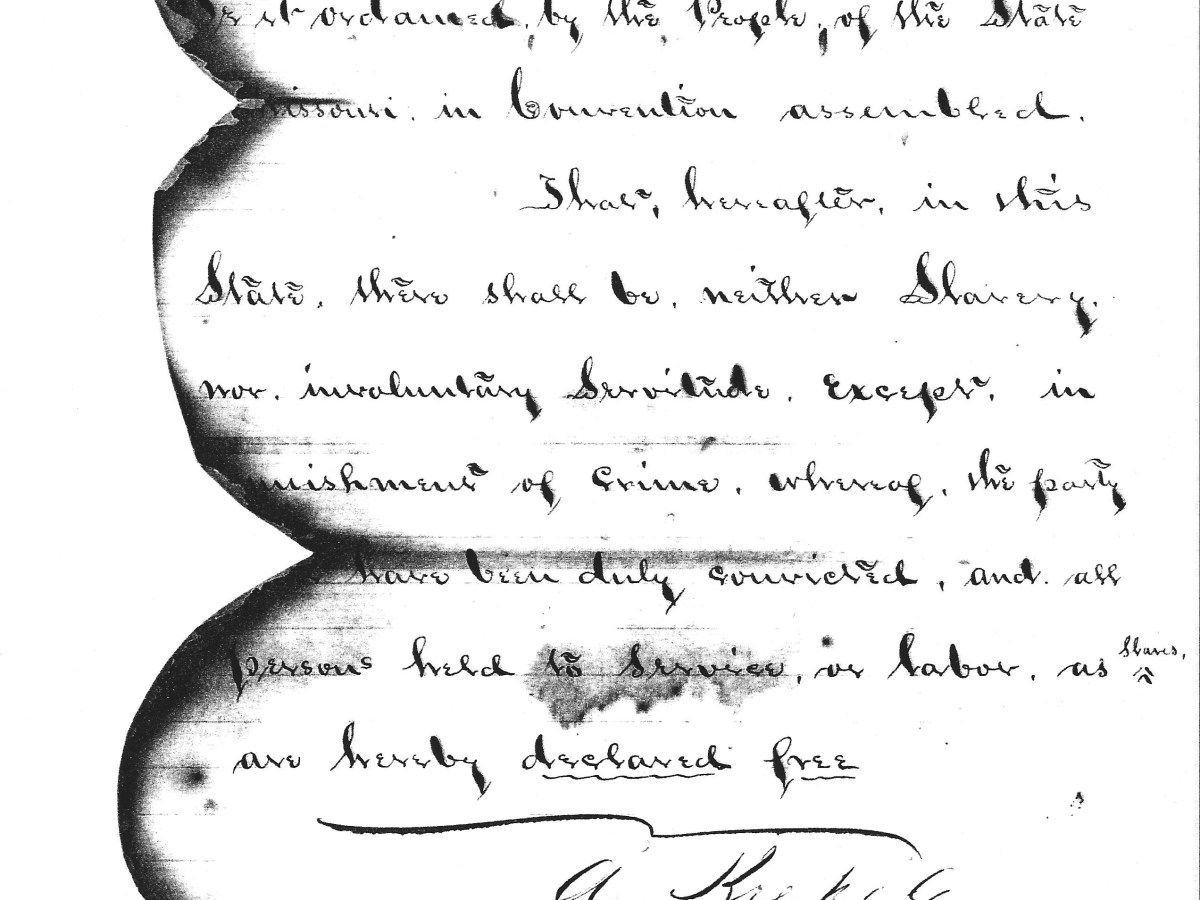 Be it ordained, by the People, of the State
Missouri, in Convention assembled.
That, hereafter, in this
State, there shall be, neither Slavery,
nor, involuntary Servitude, Except, in
punishment of Crime, whereof, the party
have been duly convicted, and all
persons held to service, or labor, as Slaves,
are hereby declared free